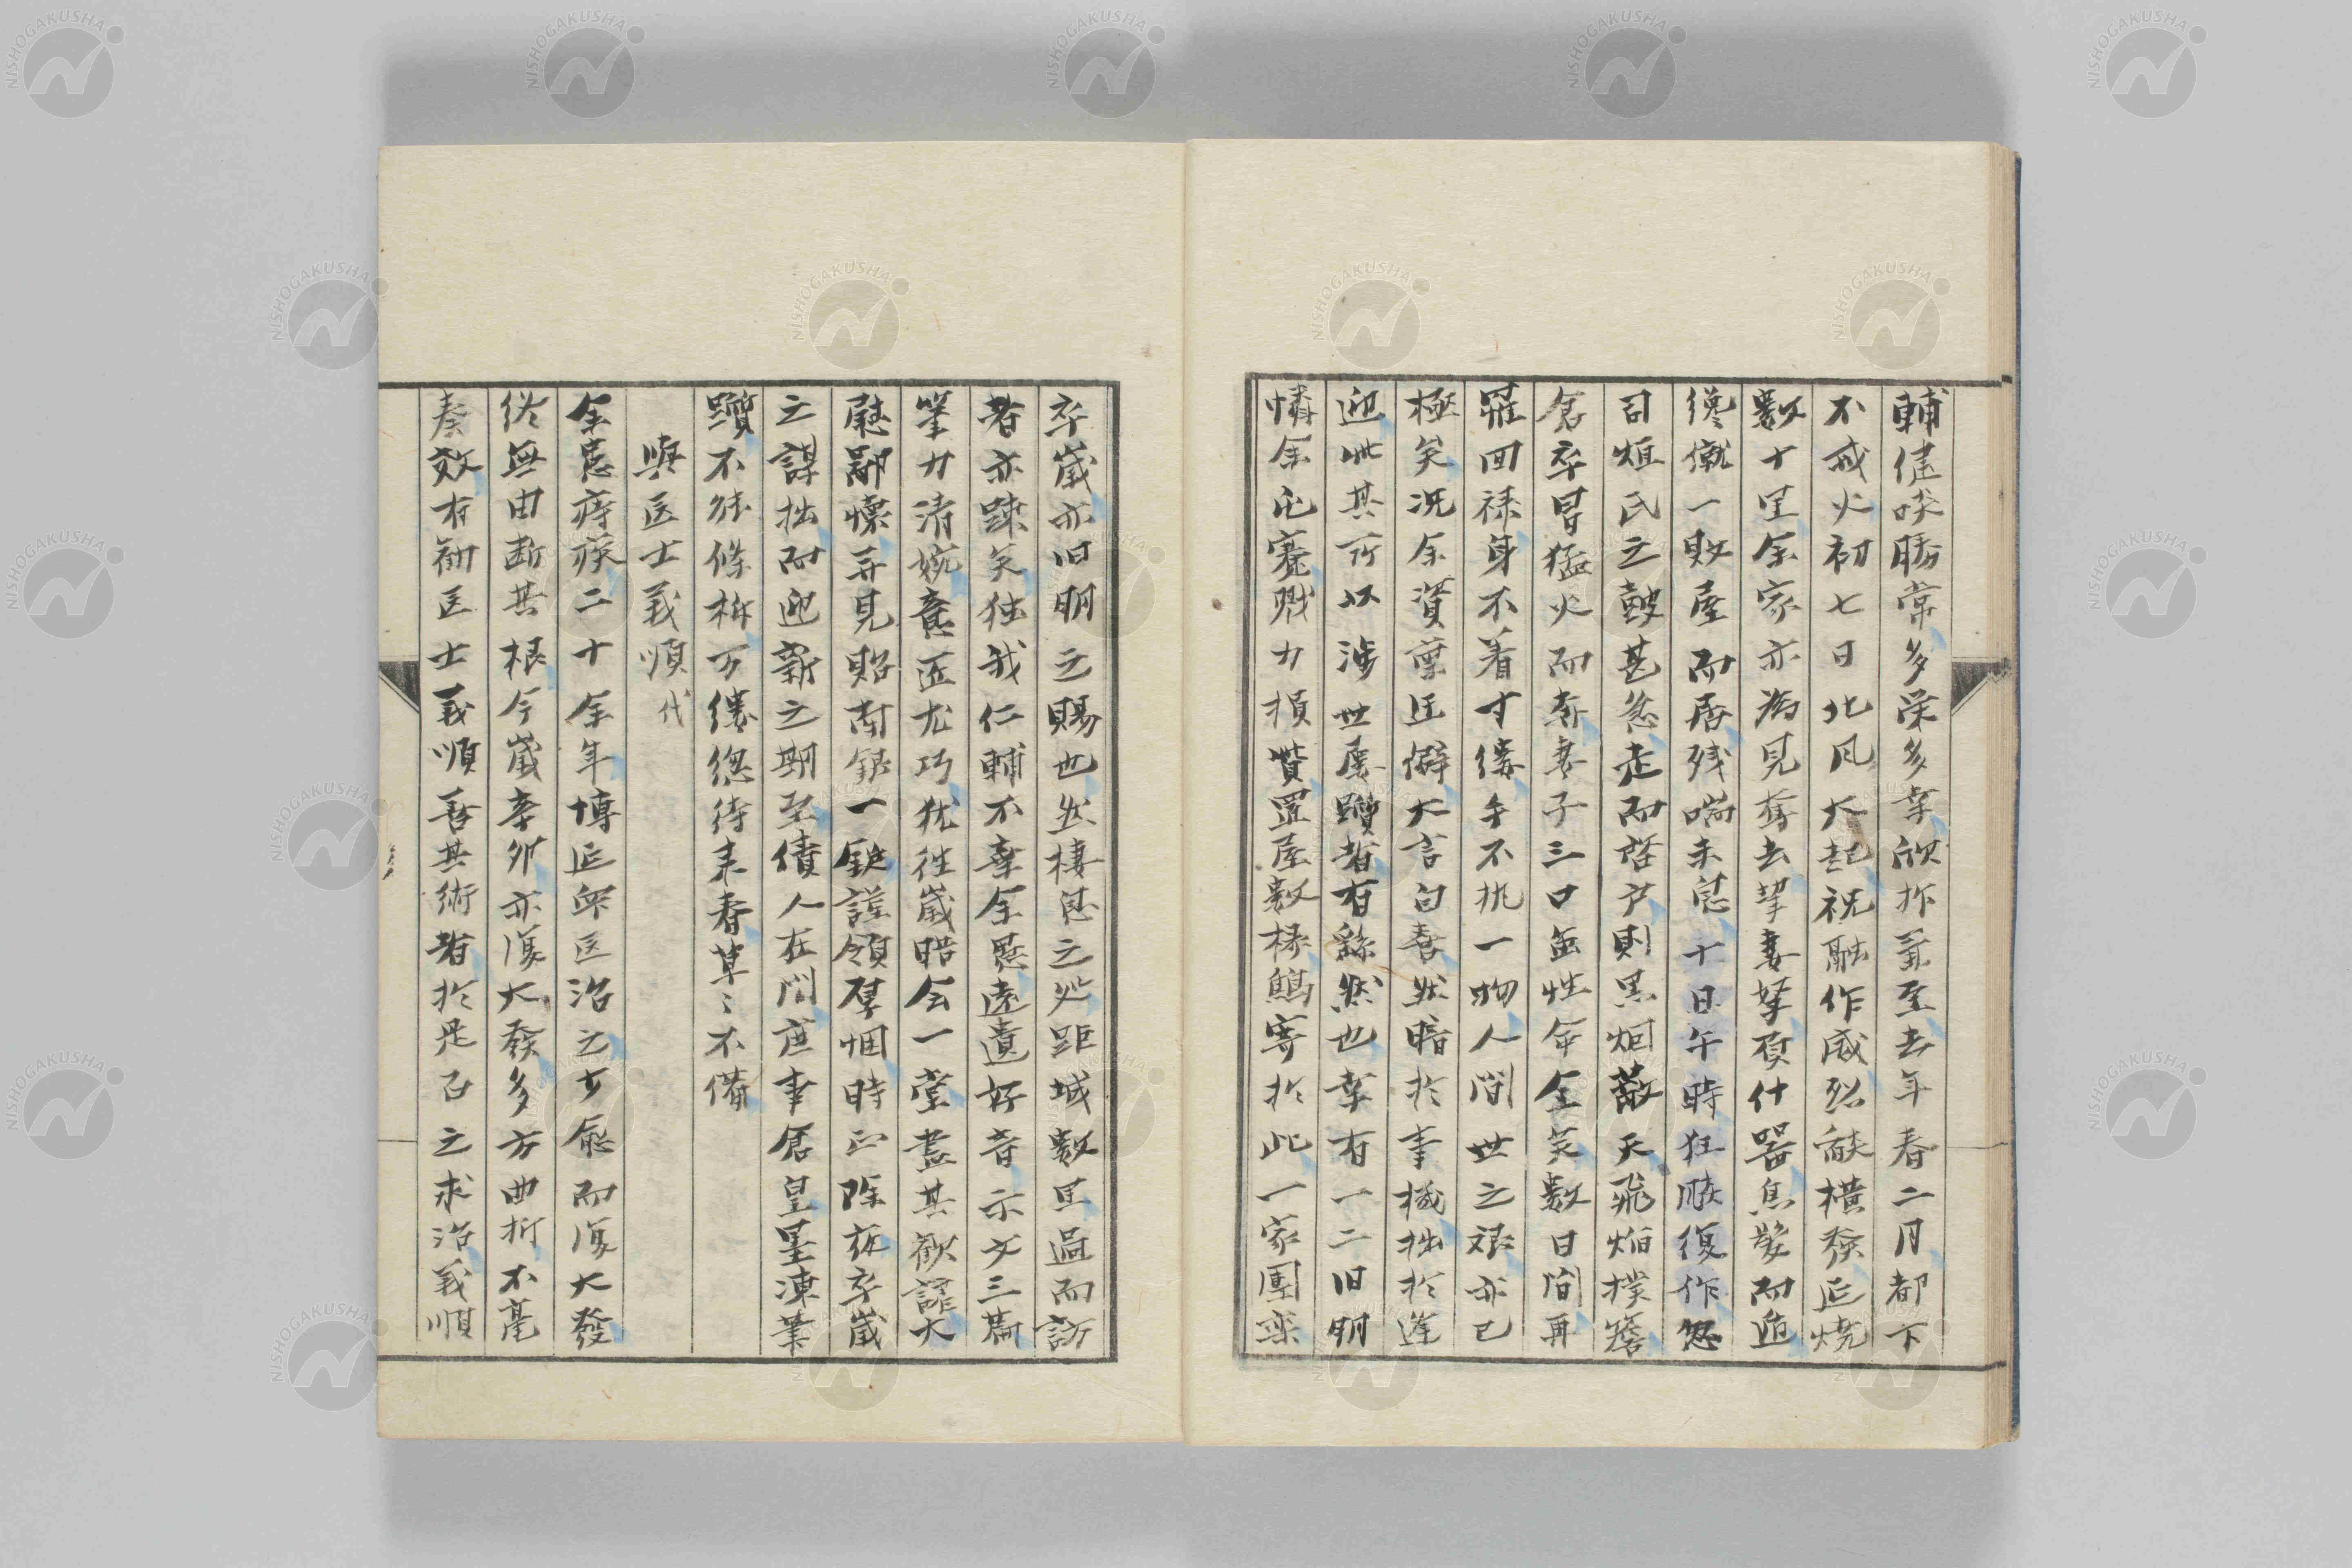 輔健啖勝常多栄多幸欣抃至去年春二月都下
不戒火初七日北風大起祝融作威烈焱横發延焼
數十里余家亦為見奪去挈妻拏頁什器焦髮而遁
纔僦一敗屋而居残喘未息十日午時狂飈復作忽
司烜氏之皷甚急走而啓戸則黒烟蔽天飛焔撲簷
倉卒冒猛火而奔妻子三口無性命全矣數日間再
罹回禄身不着寸縷手不執一物人間世之艱亦已
極矣况余資稟迂僻大言自喜然暗於事機拙於逢
迎此其所以渉世屡躓者有繇然也幸有一二旧朋
憐余屯蹇戮力損貲罡屋數椽鷦寄於此一家團欒
卒歳亦旧朋之賜也然棲息之処距城數里過而訪
者亦踈矣独我仁輔不棄余愚遠遺好音示文三篇
筆力清婉意匠尤巧犹往歳晤会一堂盡其歓謔大
慰鄙懐并見貽南鐐一鋌謹領厚悃時正除夜卒歳
之謀拙而迎新之期至債人在門庶事倉皇墨凍筆
躓不能條析万縷総待来春草〻不備
與医士義順代
余患痔疾二十余年博延衆医治之少愈而復大發
終無由断其根今歳辛卯亦復大發多方曲折不毫
奏效有初医士義順善其術者於是召之求治義順